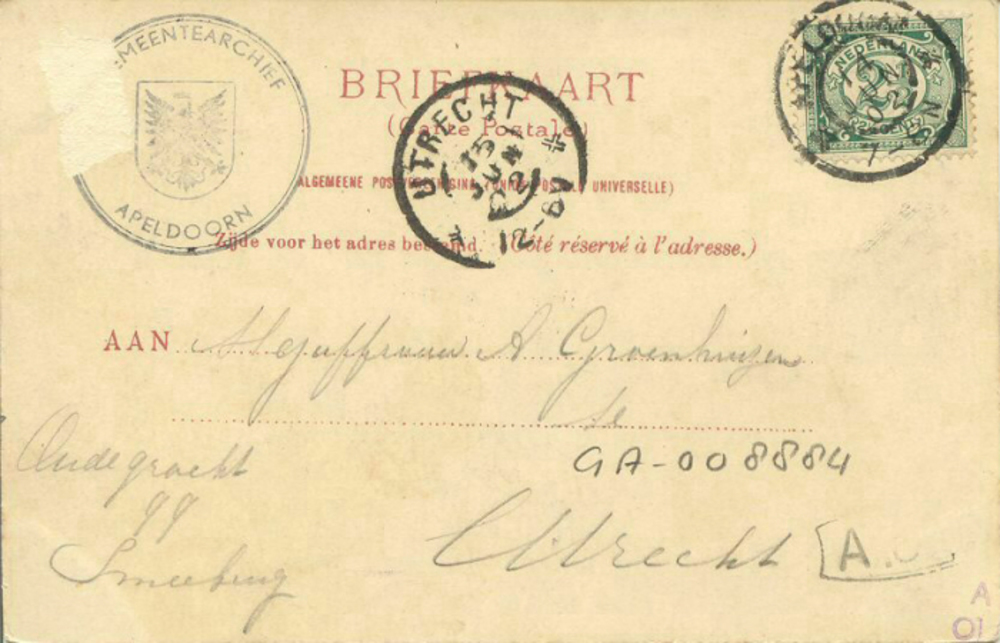 GEMEENTEARCHIEF
APELDOORN
BRIEFKAART
(Carte Postale)
(ALGEMEENE POSTVEREENIGING (UNION POSTALE UNIVERSELLE)
Zijde voor het adres bestemd. (Côté réservé à l'adresse.)
UTRECHT
15 JUN 02
12-6V
NEDERLAND
2½ CENT
AAN Mejuffrouw A Groenhuizen
te
Oudegracht
99
Smeebrug
GA-008884
Utrecht
A.
A
01